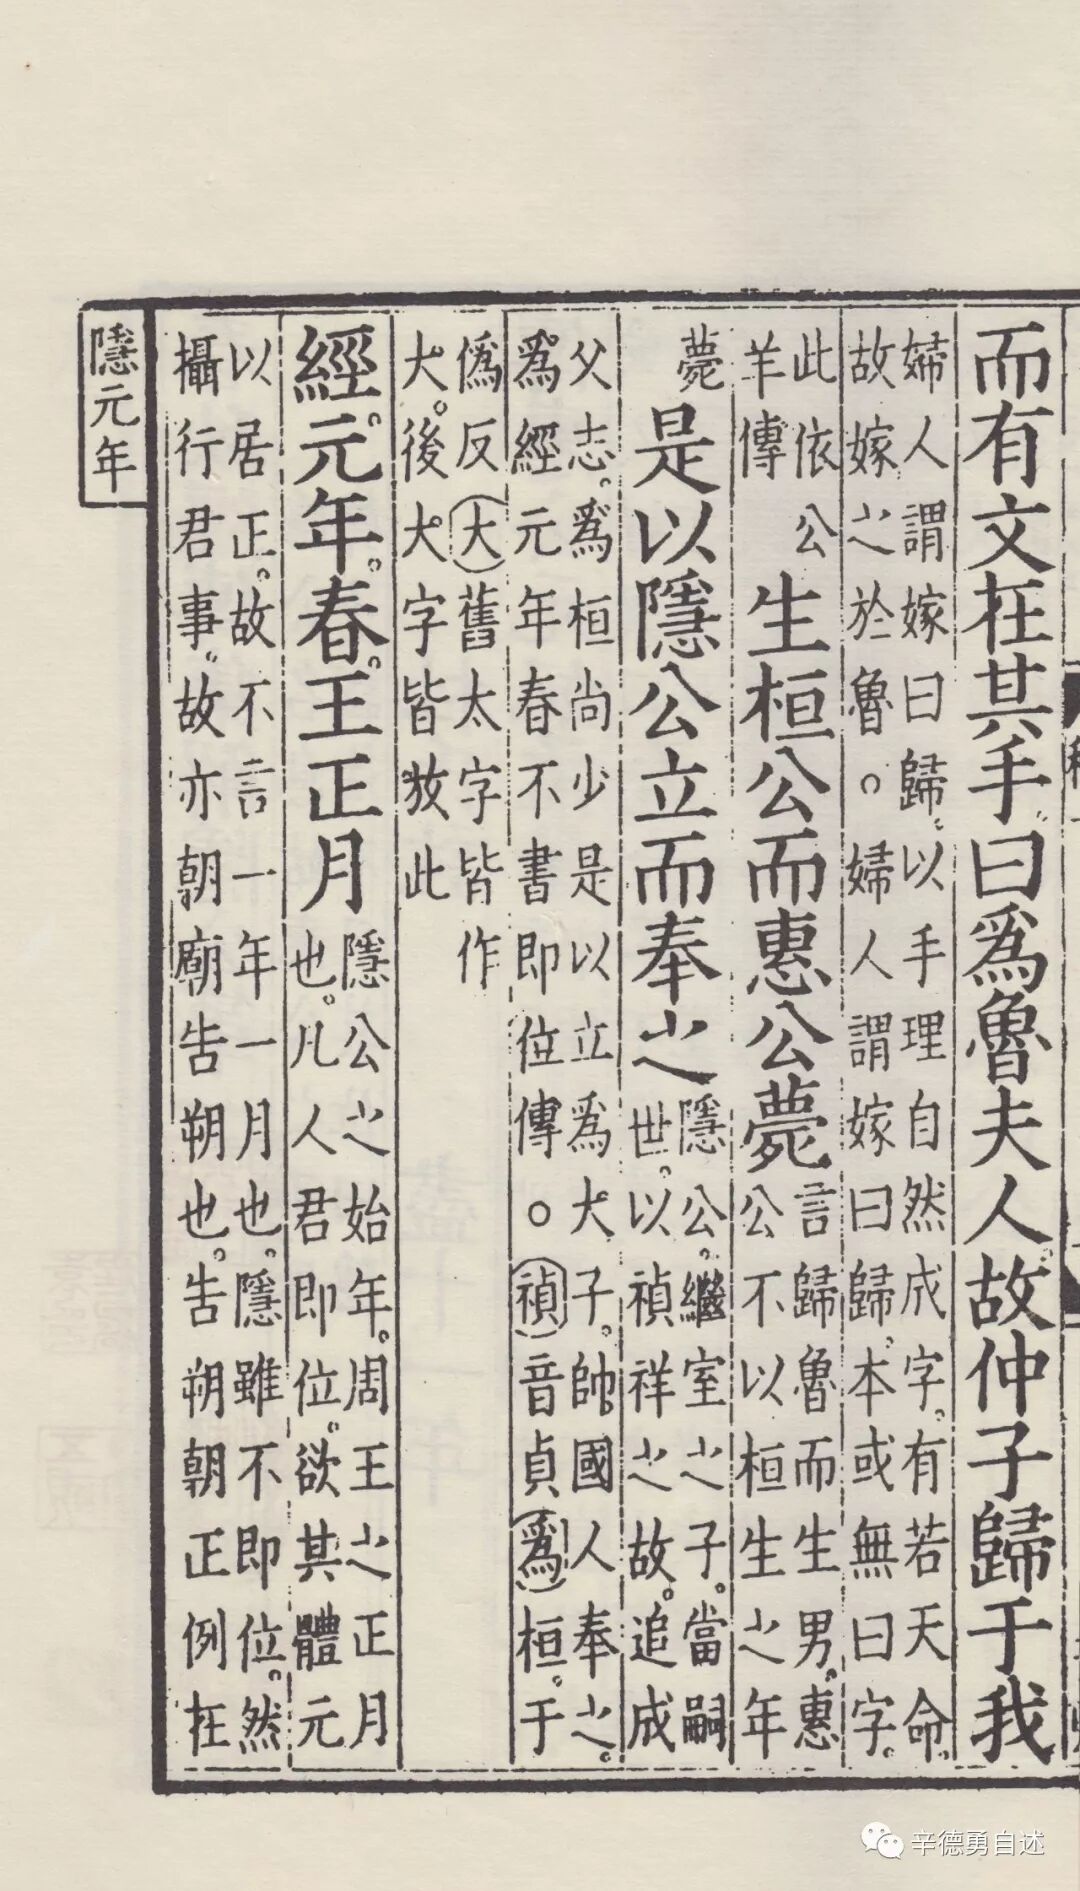 而有文在其手。曰爲魯夫人。故仲子歸于我
婦人謂嫁曰歸。以手理自然成字。有若天命。
故嫁之於魯。婦人謂嫁曰歸。本或無曰字。
此依公
羊傳
生桓公而惠公薨
言歸魯而生男。惠
公不以桓生之年
薨
是以隱公立而奉之
隱公。繼室之子。當嗣
世。以禎祥之故。追成
父志。爲桓尚少是以立爲大子。帥國人奉之。
爲經元年春不書即位傳○(禎)音貞(爲)桓。于
僞反(大)舊太字皆作
大。後大字皆放此
經。元年。春。王正月
隱公之始年。周王之正月
也。凡人君即位。欲其體元
以居正。故不言一年一月也。隱雖不即位。然
攝行君事。故亦朝廟告朔也。告朔朝正例在
隱元年
辛德勇自述